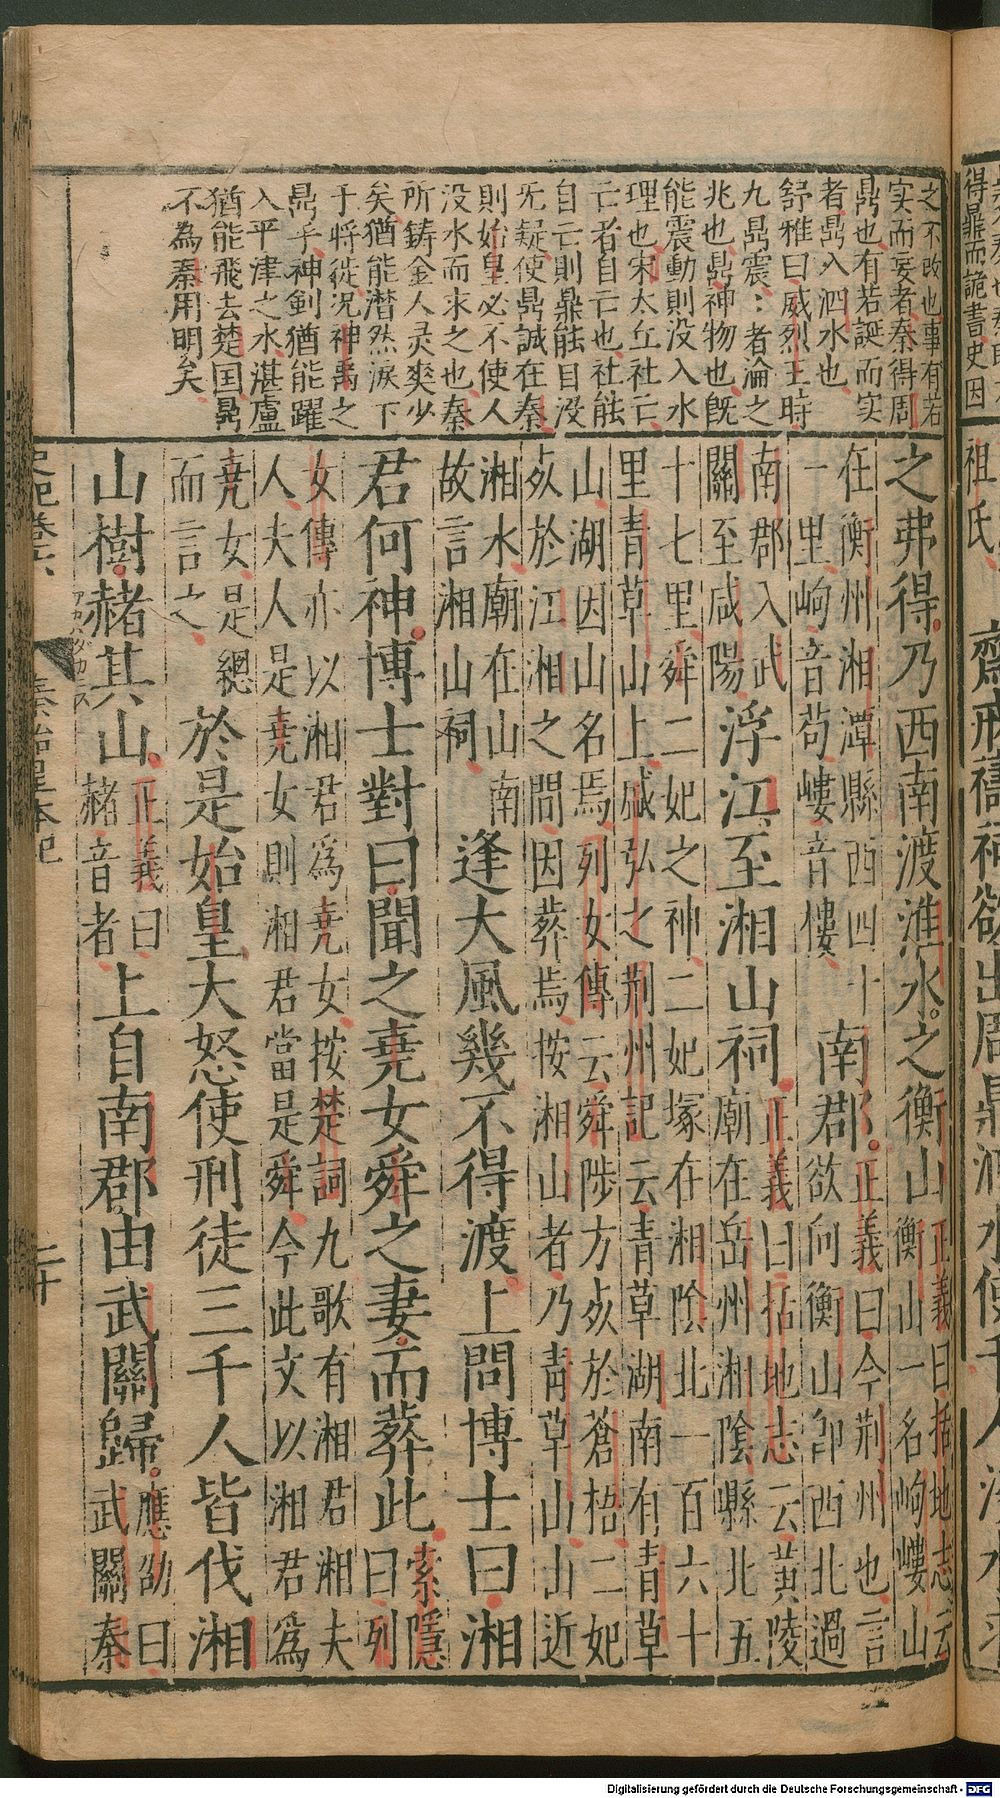 得鼎而詭書史因
之不改也事有若
实而妄者秦得周
鼎也有若誕而实
者鼎入泗水也
舒雅曰威烈王時
九鼎震〻者淪之
兆也鼎神物也旣
能震動則没入水
理也宋太丘社亡
亡者自亡也社能
自亡則鼎能自没
无疑使鼎誠在秦
則始皇必不使人
没水而求之也秦
所鋳金人灵爽少
矣猶能潜然淚下
于将徙况神禹之
鼎乎神剣猶能躍
入平津之水湛盧
猶能飛去楚国鼎
不為秦用明矣
之弗得乃西南渡淮水之衡山
正義曰括地志云
衡山一名岣嶁山
在衡州湘潭縣西四十
一里岣音苟嶁音樓
南郡
正義曰今荆州也言
欲向衡山卽西北過
南郡入武
關至咸陽
浮江至湘山祠
正義曰括地志云黄陵
廟在岳州湘陰縣北五
十七里舜二妃之神二妃塚在湘陰北一百六十
里青草山上盛弘之荆州記云青草湖南有青草
山湖因山名焉列女傳云舜陟方歿於蒼梧二妃
歿於江湘之間因葬焉按湘山者乃青草山山近
湘水廟在山南
故言湘山祠
逢大風幾不得渡上問博士曰湘
君何神博士對曰聞之堯女舜之妻而葬此
索隱
曰列
女傳亦以湘君爲堯女按楚詞九歌有湘君湘夫
人夫人是堯女則湘君當是舜今此文以湘君爲
堯女是總
而言之
於是始皇大怒使刑徒三千人皆伐湘
山樹赭其山
正義曰
赭音者
上自南郡由武關歸
應劭曰
武關秦
Digitalisierung gefördert durch die Deutsche Forschungsgemeinschaft - DFG